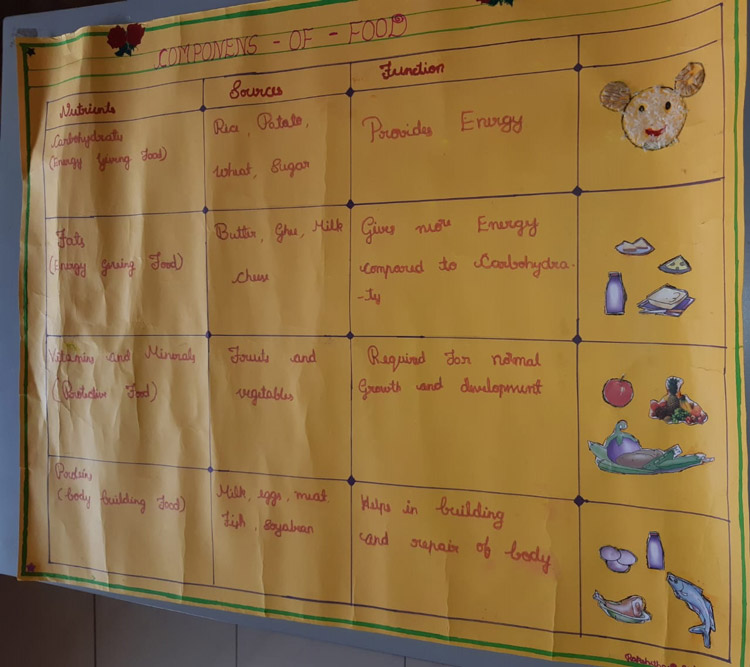 COMPONENS - OF - FOOD
Nutrients
Sources
Function
Carbohydrats
(Energy Giving Food)
Rice, Potato,
Wheat, Sugar
Provides Energy
Fats
(Energy geving Food)
Butter, Ghee, Milk
cheese
Gives more Energy
compared to Carbohydra-
-ty
Vitamins and Minerals
(Protective Food)
Fruits and
vegetables
Required For normal
Growth and development
Proteins
(body building Food)
Milk, eggs, meat
Fish, Soyabean
Helps in building
and repair of body